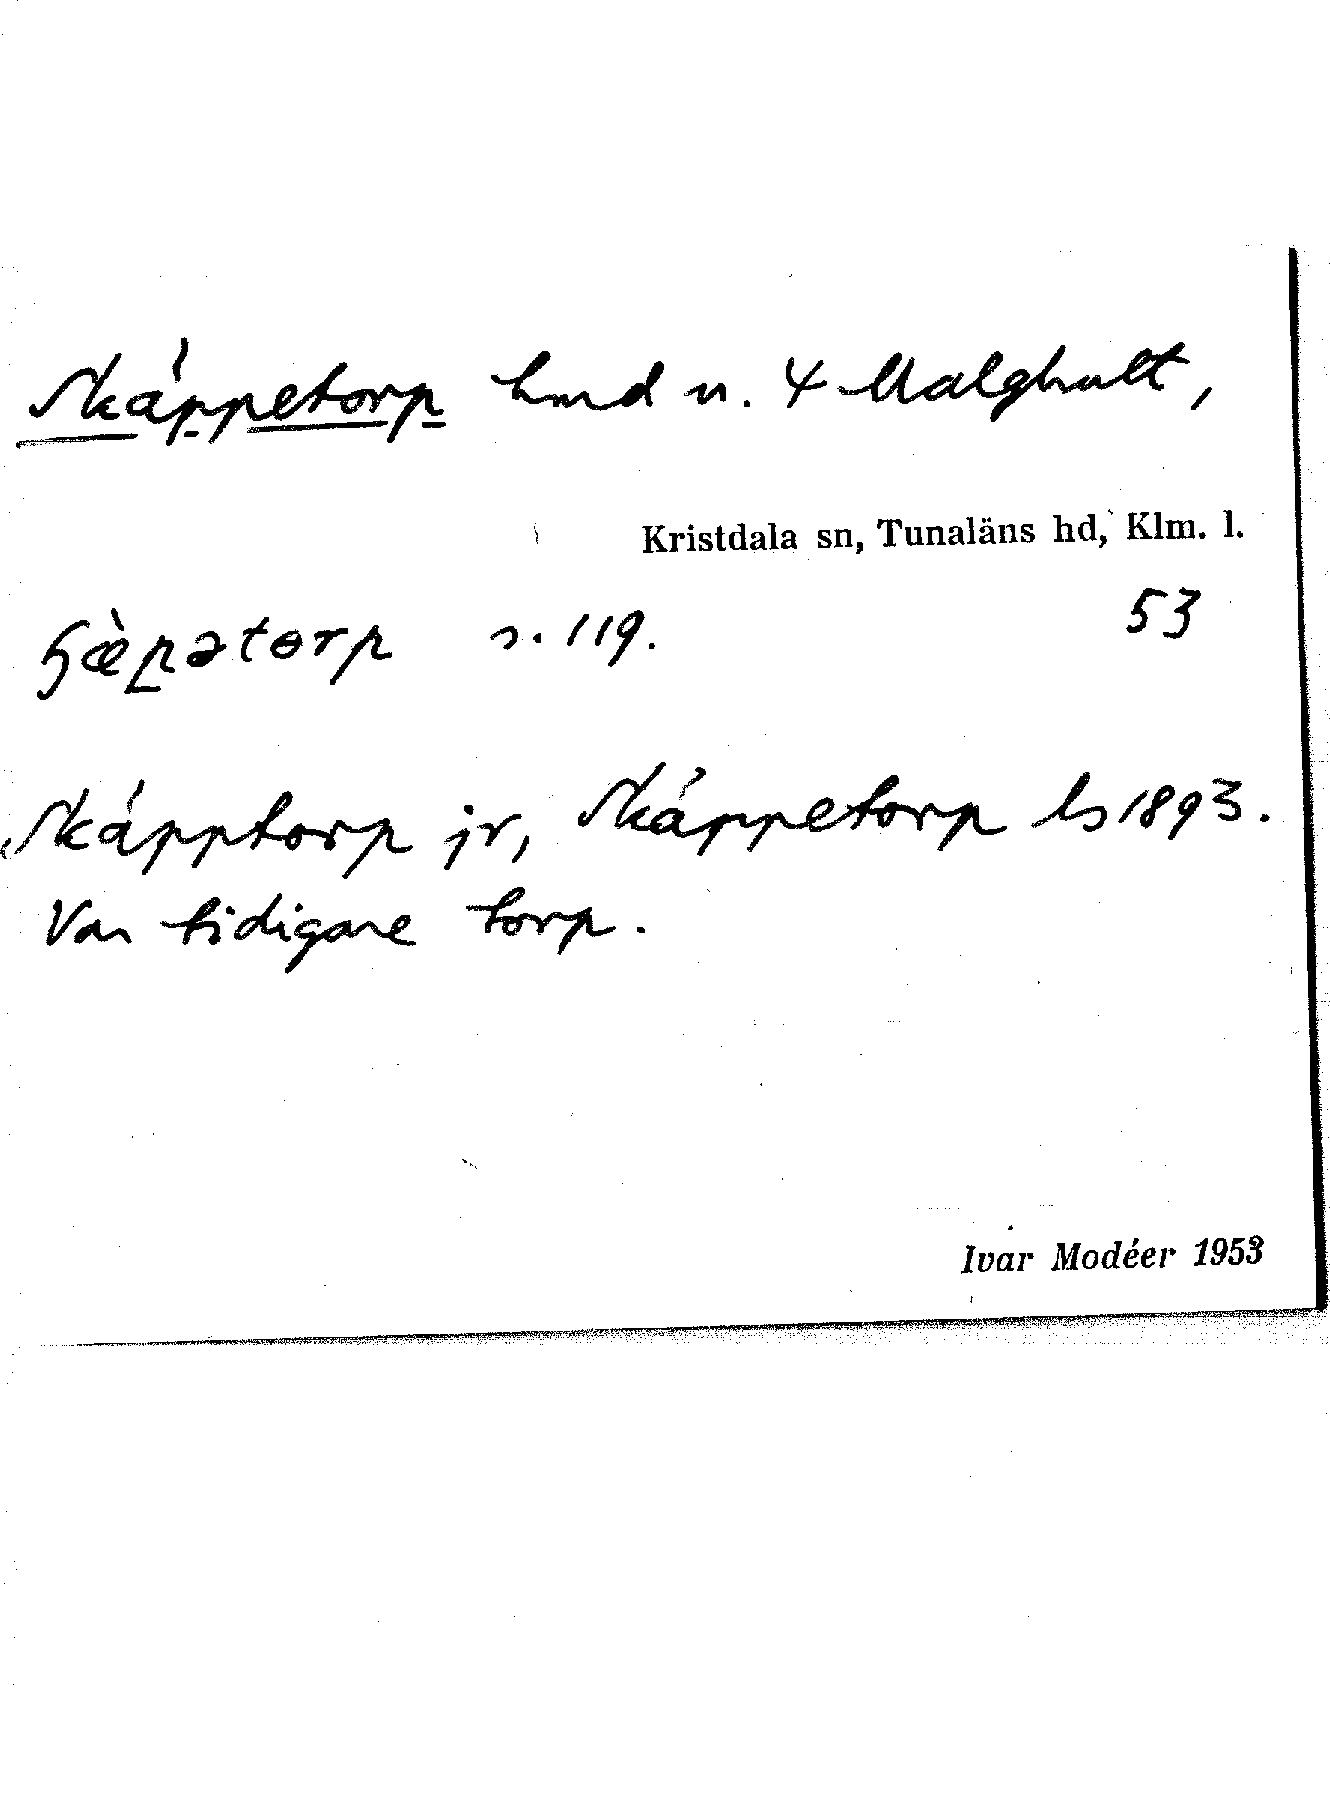 Skáppetorp hmd u. 4 Malghult,
Kristdala sn, Tunaläns hd, Klm. l.
ɧæ̀p̲ətɵrp s. 119. 53
Skápptorp jr, Skáppetorp ls 1893.
Var tidigare torp.
Ivar Modéer 1953